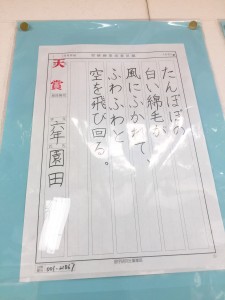 たんぽぽの
白い綿毛が、
風にふかれて、
ふわふわと
空を飛び回る。
天賞
六年 園田